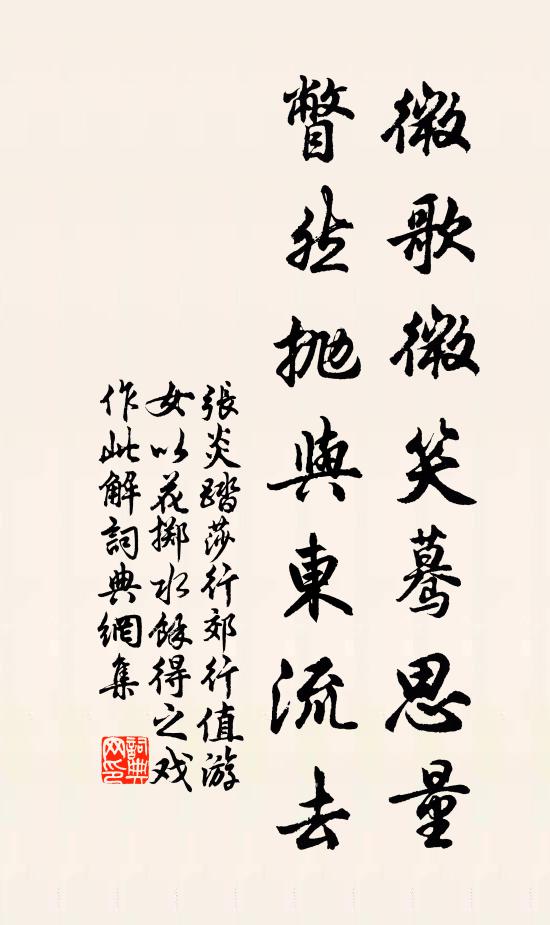 微歌微笑驀思量
瞥然拋與東流去
張炎踏莎行郊行值游
女以花擲水餘得之戏
作此解詞典網集
詞典网印